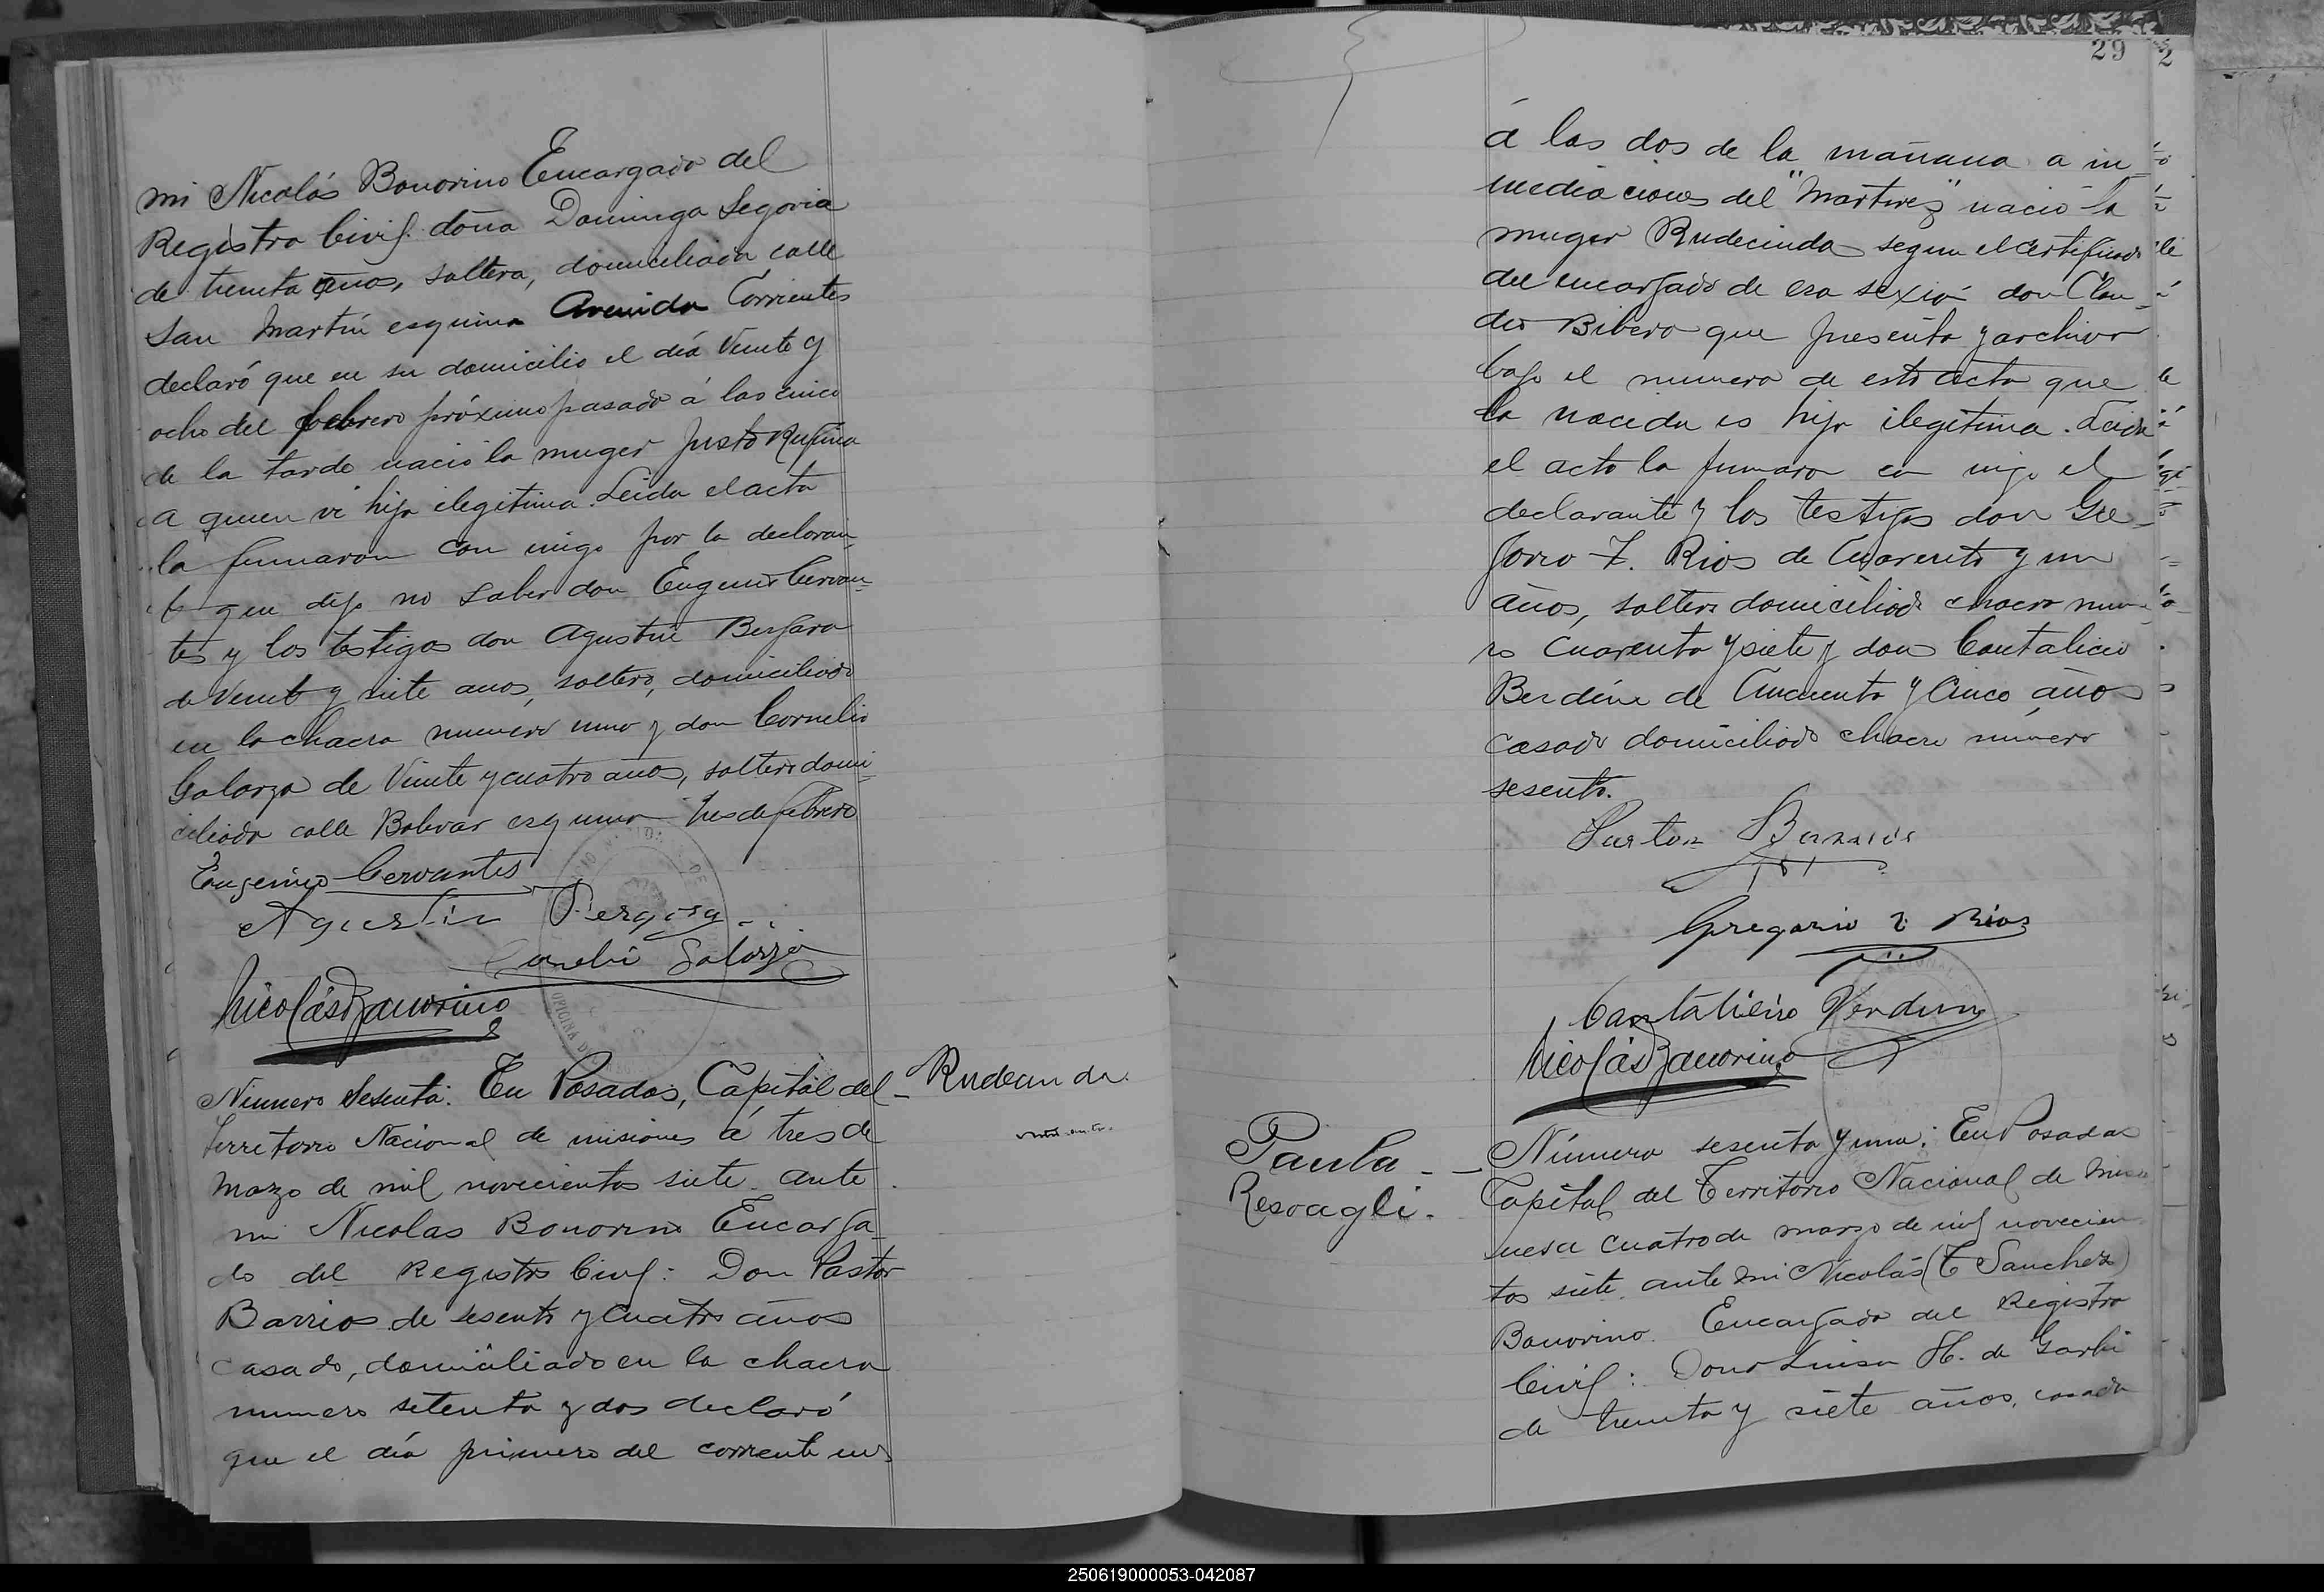 mi Nicolás Bonorino Encargado del
Registro Civil. doña Dominga Segovia
de treinta años, soltera, domiciliada calle
San Martín esquina Avenida Corrientes
declaró que en su domicilio el día Veinte y
ocho del febrero próximo pasado á las cinco
de la tarde nació la muger Justa Rufina
a quien vi hija ilegitima. Leida el acta
la firmaron con migo por la declaran-
te que dijo no saber don Eugenio Cervan-
tes y los testigos don Agustín Bergara
de Veinte y siete años, soltero, domiciliado
en la chacra numero uno y don Cornelio
Galarza de Veinte y cuatro años, soltero domi-
ciliado calle Bolivar esquina tres de febrero
Eugenio Cervantes
Agustin Bergara
Cornelio Galarza
Nicolás Bonorino
Número Sesenta: En Posadas, Capital del
Territorio Nacional de misiones á tres de
Marzo de mil novecientos siete ante
mi Nicolas Bonorino Encarga-
do del Registro Civil: Don Pastor
Barrios de sesenta y cuatro años
casado, domiciliado en la chacra
numero setenta y dos declaró
que el día primero del corriente mes
Rudecinda
29
á las dos de la mañana a in-
mediaciones del "Martires" nació la
muger Rudecinda segun el certificado
del encargado de esa sexión don Clau-
dio Bibero que presenta y archivo
bajo el numero de esta acta que
la nacida es hija ilegitima. Leida
el acta la firmaron con migo el
declarante y los testigos don Gre-
gorio Z. Rios de Cuarenta y un
años, soltero domiciliado chacra nume-
ro cuarenta y siete y don Cantalicio
Berdun de Cincuenta y Cinco años
casado domiciliado chacra número
sesenta.
Pastor Barrios
Gregorio Z Rios
Cantalicio Verdun
Nicolás Bonorino
Paula
Resoagli.
Número sesenta y uno: En Posadas
Capital del Territorio Nacional de Misio
nes a cuatro de marzo de mil novecien
tos siete ante mi Nicolás (T Sanchez)
Bonorino Encargado del Registro
Civil: Doña Luisa H. de Garbi
de treinta y siete años, casada
250619000053-042087